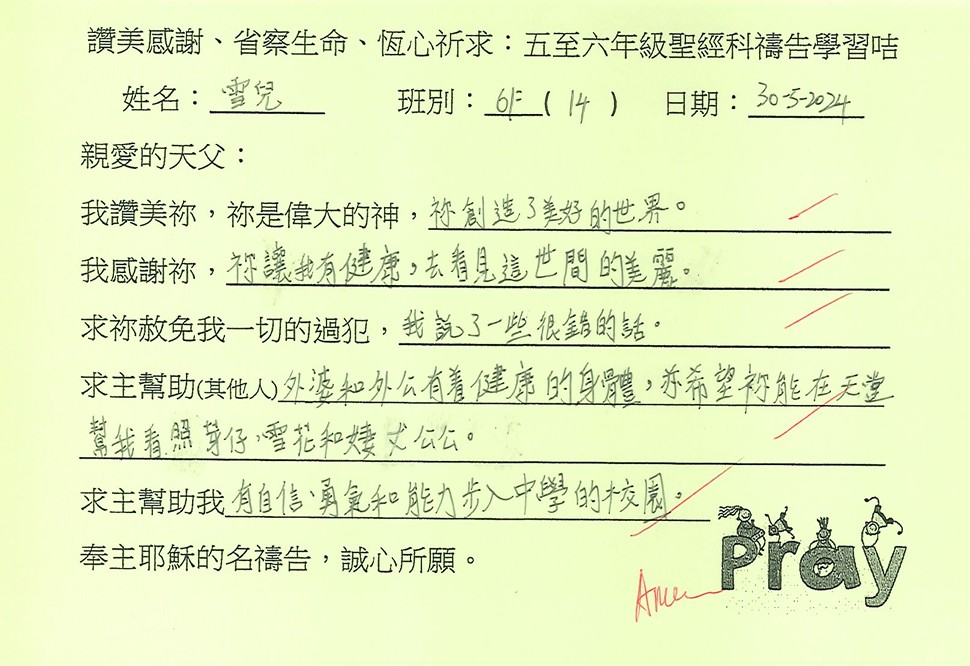 讚美感謝、省察生命、恆心祈求：五至六年級聖經科禱告學習咭
姓名：雪兒 班別：6F(14) 日期：30-5-2024
親愛的天父：
我讚美祢，祢是偉大的神，祢創造了美好的世界。
我感謝祢，祢讓我有健康，去看見這世間的美麗。
求祢赦免我一切的過犯，我說了一些很錯的話。
求主幫助(其他人)外婆和外公有着健康的身體，亦希望祢能在天堂
幫我看照芽仔、雪花和丈公公。
求主幫助我有自信、勇氣和能力步入中學的校園。
奉主耶穌的名禱告，誠心所願。
Pray
Amen